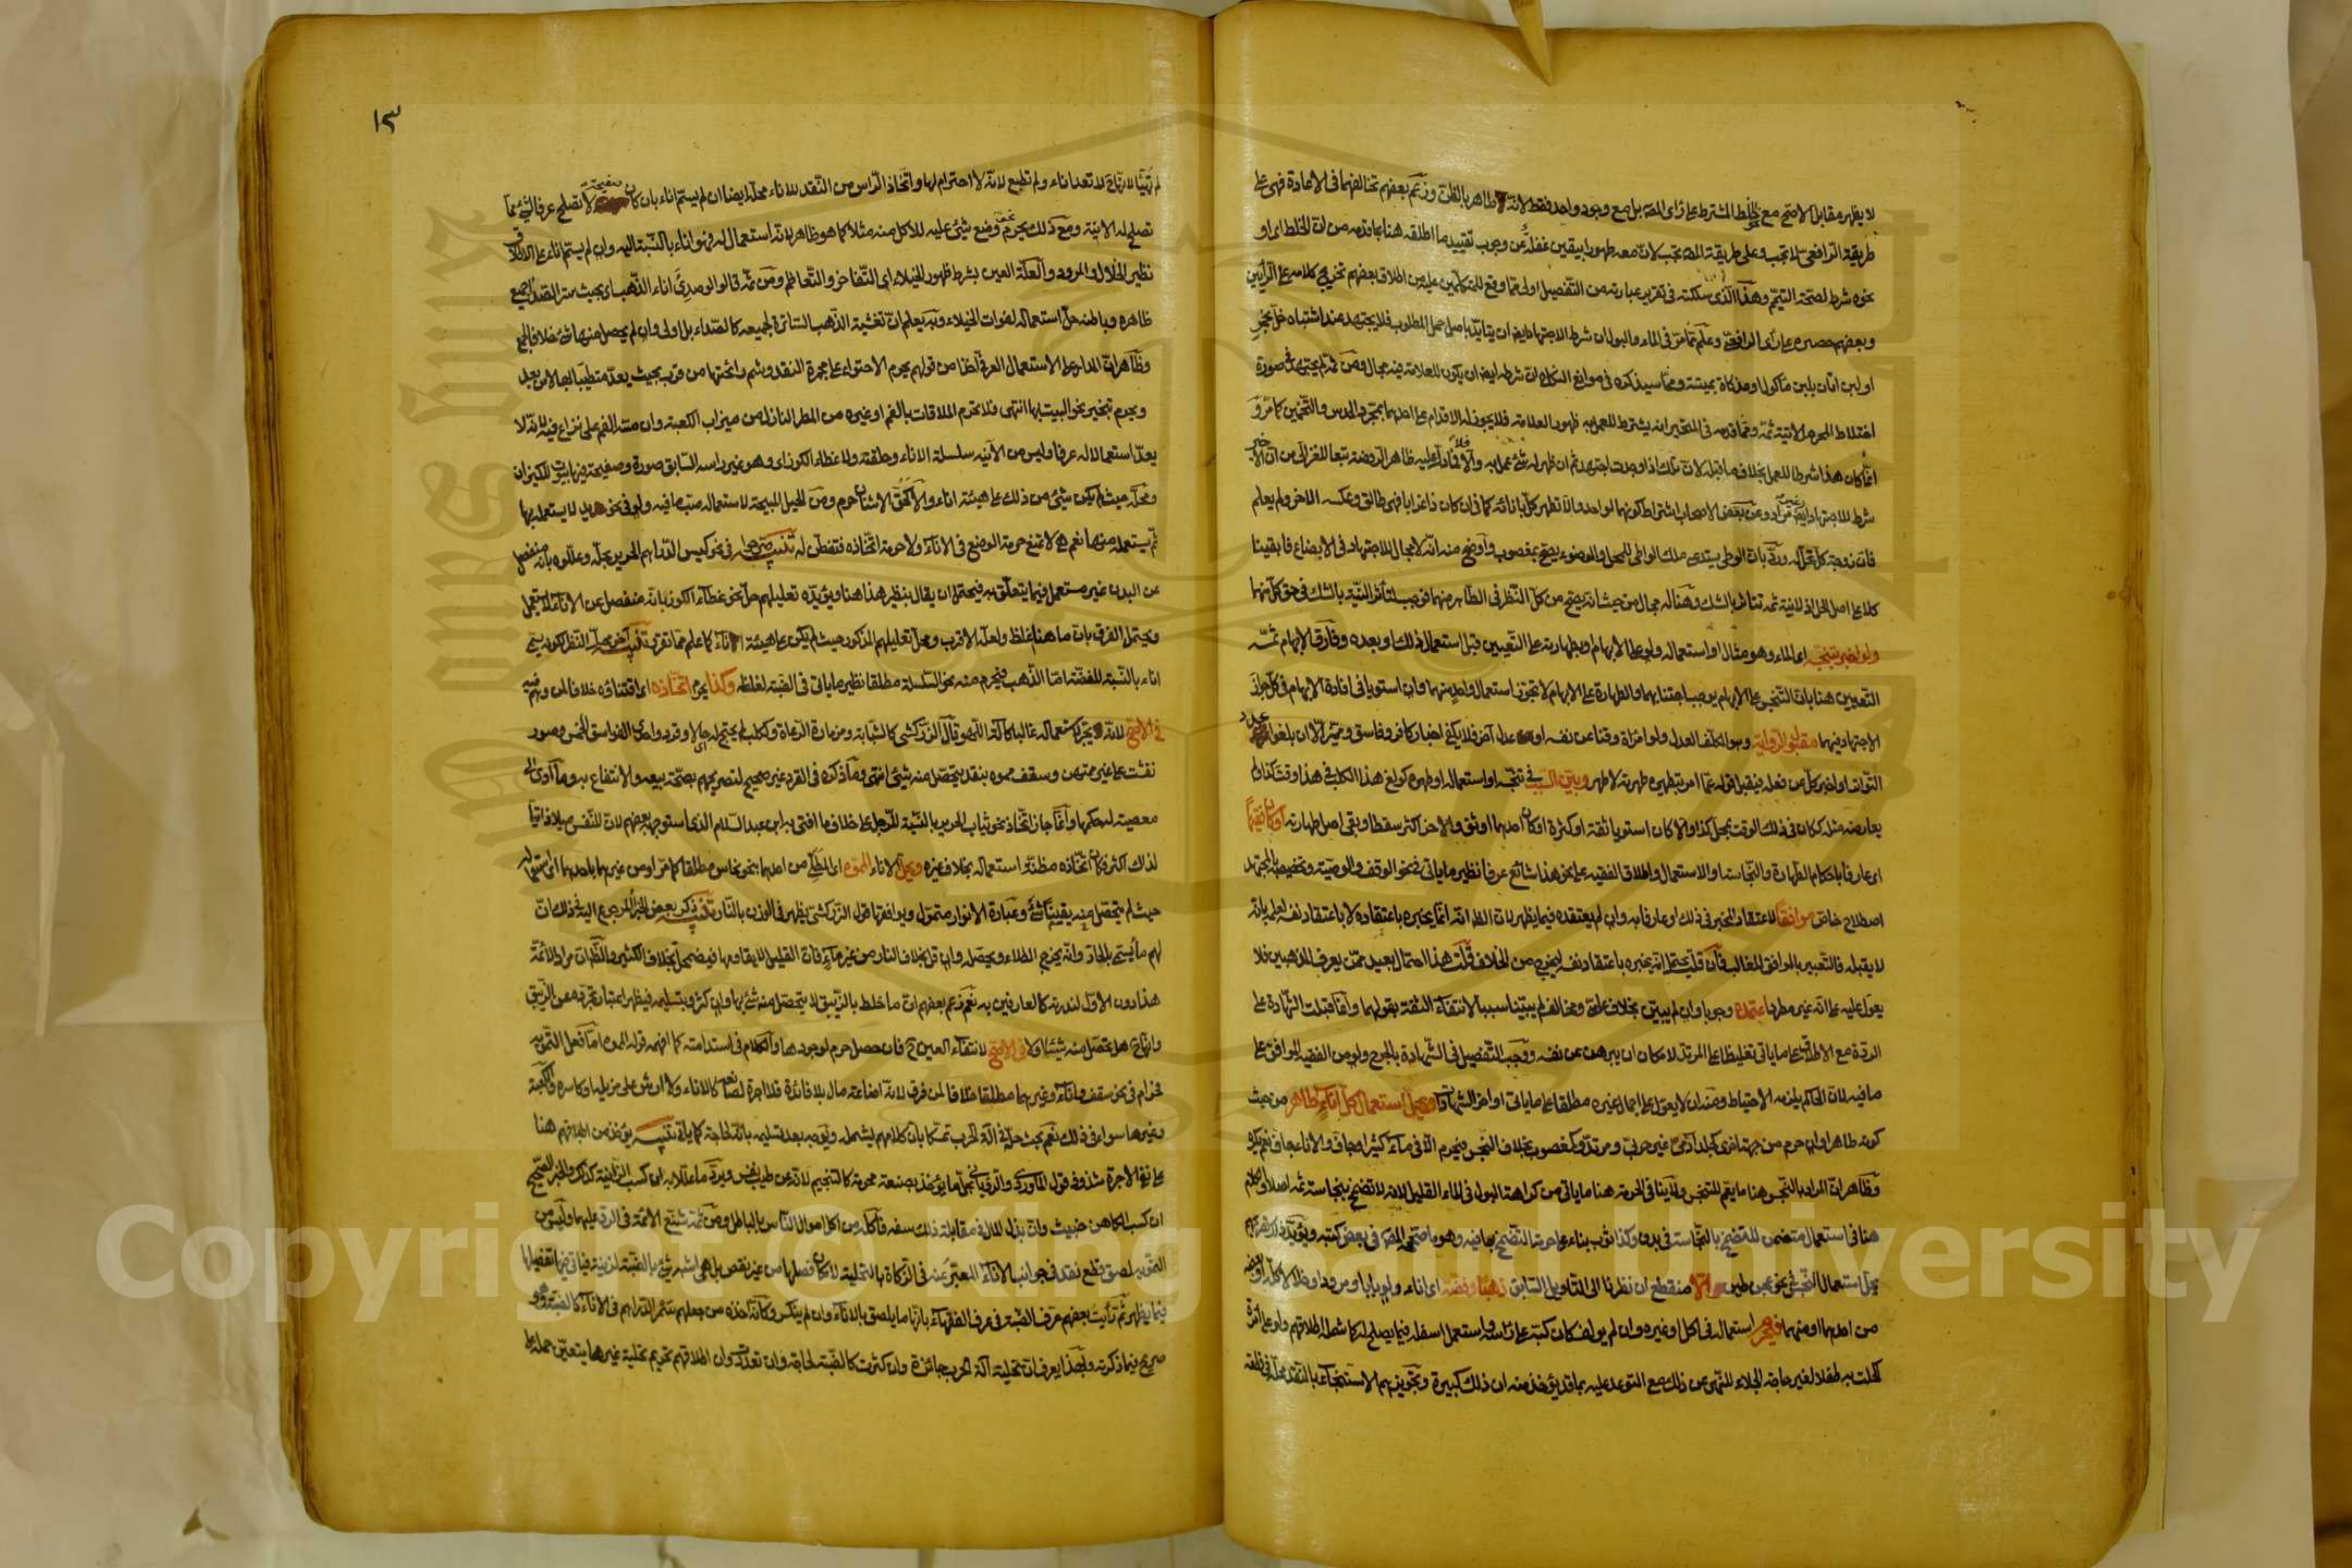 لا يظهر مقابل الاصح مع خلط المشترط على رأى المص بل مع وجود واحد فقط لانه طاهر بالظن وزعم بعضهم تخالفهما فى الاعادة فهى على
طريقة الرافعى لا تجب وعلى طريقة المص تجب لان معه طهورا بيقين غفلة عن وجوب تقييد ما اطلقه هنا بما قدمه من ان الخلط او
نحوه شرط لصحة التيمم وهذا الذى سلكته فى تقرير عبارته من التفصيل اولى مما وقع للمتكلمين عليه من اطلاق بعضهم تخريج كلامه على الرأيين
وبعضهم حصره على رأى الرافعى وعلم مما مر فى الماء والبول ان شرط الاجتهاد ايضا ان يتأيد باصل حل المطلوب فلا يجتهد عند اشتباه خل بخمر
او لبن اتان بلبن مأكول او مذكاة بميتة ومما سيذكره فى موانع النكاح ان شرطه ايضا ان يكون للعلامة فيه مجال ومن ثم لم يجتهد فى صورة
اختلاط المحرم الاتية ثمه ومما قدمه فى المتحير انه يشترط للعمل به ظهور العلامة فلا يجوز له الاقدام على احدهما بمجرد الحدس والتخمين كما مر و
انما كان هذا شرطا للعمل بخلاف ما قبله لان تلك اذا وجدت اجتهد ثم ان ظهر له شئ عمل به والا فلا
شرط للاجتهاد ايضا وعن بعض الاصحاب اشتراط كونهما لواحد والا تطهر كل بانائه كما فى ان كان ذا غرابا فهى طالق وعكسه الاخر ولم يعلم
فان زوجة كل تحل له ورد بان الوطئ يستدعى ملك الواطئ للمحل والوضوء يصح بمغصوب واوضح منه انه لا مجال للاجتهاد فى الابضاع فابقينا
كلا على اصل الحل اذ لا نية ثمه تتأثر بالشك وهنا له مجال من حيث انه يصح من كل النظر فى الطاهر منهما فوجب لتأثر النية بالشك فى حق كل منهما
ولو اخبر بتنجسه اى الماء وهو مثال او استعماله ولو على الابهام وبطهارته على التعيين قبل استعمال ذلك او بعده وفارق الابهام ثمه
التعيين هنا بان التنجس على الابهام يوجب اجتنابهما والطهارة على الابهام لا تجوز استعمال واحد منهما وان استويا فى افادة الابهام فى كل جواز
الاجتهاد فيهما مقبول الرواية وهو المكلف العدل ولو امرأة وقنا عن نفسه او عدل آخر فلا يكفى اخبار كافر وفاسق ومميز الا ان بلغوا عدد
التواتر او اخبر كل عن فعله فيقبل قوله عما امر بتطهيره طهرته لا طهر وبين السبب فى تنجسه او استعماله او طهره كولغ هذا الكلب فى هذا وقت كذا ولم
يعارضه مثله ككان فى ذلك الوقت بمحل كذا والا كان استويا ثقة او كثرة او كان احدهما اوثق والاخر اكثر سقطا وبقى اصل طهارته او كان فقيها
اى عارفا باحكام الطهارة والنجاسة او الاستعمال واطلاق الفقيه على نحو هذا شائع عرفا نظير ما ياتى فى نحو الوقف والوصية وتخصيصه بالمجتهد
اصطلاح خاص موافقا لاعتقاد المخبر فى ذلك او عارفا به وان لم يعتقده فيما يظهر لان الظ انه انما يخبره باعتقاده لا باعتقاد نفسه لعلمه بانه
لا يقبله فالتعبير بالموافق للغالب فان قلت يحتمل انه يخبره باعتقاد نفسه ليخرج من الخلاف قلت هذا احتمال بعيد ممن يعرف المذهبين فلا
يعول عليه على انه غير مطرد اعتمده وجوبا وان لم يبين بخلاف عامى ومخالف لم يبينا سببا لانتفاء الثقة بقولهما وانما قبلت الشهادة على
الردة مع الاطلاق على ما ياتى تغليظا على المرتد لامكان ان يبرهن عن نفسه ووجب التفصيل فى الشهادة بالجرح ولو من الفقيه الموافق على
ما فيه لان الحاكم يلزمه الاحتياط ومن ان لا يعول على اجمال غيره مطلقا على ما ياتى اواخر الشهادات ويحل استعمال كل اناء طاهر من حيث
كونه طاهرا وان حرم من جهة اخرى كجلد آدمى غير حربى ومرتد وكمغصوب بخلاف النجس فيحرم الا فى ماء كثير او جاف والاناء جاف نعم يكره
وظاهر ان المراد بالنجس هنا ما يعم المتنجس ولا ينافى الحرمة هنا ما ياتى من كراهة البول فى الماء القليل لانه لا تضمخ بنجاسة ثمه اصلا
هنا فى استعمال متضمن للتضمخ بالنجاسة فى بدن وكذا ثوب بناء على حرمة التضمخ بها فيه وهو ما صححه المص فى بعض كتبه ويؤيد
يحل استعمال النجس فى نحو عجن طين الا منقطع ان نظرنا الى التأويل السابق ذهبا وفضة اى اناء ولو بابا او مرودا وخلالا
من احدهما او منهما فيحرم استعماله فى اكل او غيره وان لم يؤلف كأن كبه على رأسه واستعمل اسفله فيما يصلح له كما شمله اطلاقهم ولو على امرأة
كحلت به طفلا لغير حاجة الجلاء للنهى عن ذلك مع التوعد عليه بما قد يؤخذ منه ان ذلك كبيرة وتجويزهم الاستنجاء بالنقد محله فى قطعة
١٣
لم تهيأ لانها لا تعد اناء ولم تطبع لانه لا احترام لها واتخاذ الرأس من النقد للاناء محله ايضا ان لم يسم اناء بان كان صفيحة لا تصلح عرفا لشئ مما
تصلح له الانية ومع ذلك يحرم نحو وضع شئ عليه للاكل منه مثلا كما هو ظاهر لانه استعمال له فهو اناء بالنسبة اليه وان لم يسم اناء على الاطلاق
نظير الخلال والمرود والعلة العين بشرط ظهور الخيلاء اى التفاخر والتعاظم ومن ثمه قالوا لو صدئ اناء الذهب اى بحيث ستر الصدأ جميع
ظاهره وباطنه حل استعماله لفوات الخيلاء وبه يعلم ان تغشية الذهب الساترة لجميعه كالصداء بل اولى وان لم يحصل منها شئ خلافا لجمع
وظاهر ان المدار على الاستعمال العرفى اخذا من قولهم يحرم الاحتواء على مجمرة النقد وشم رائحتها من قرب بحيث يعد متطيبا بها لا من بعد
ويحرم تبخير نحو البيت بها انتهى فلا تحرم الملاقات بالفم او غيره من المطر النازل من ميزاب الكعبة وان مسه الفم على نزاع فيه لانه لا
يعد استعمالا له عرفا وليس من الآنية سلسلة الاناء وحلقته ولا غطاء الكوز اى وهو غير رأسه السابق صورة وصفيحة فيها بيوت للكيزان
ومحله حيث لم يكن شئ من ذلك على هيئة اناء والا حرم ومن الحيل المبيحة لاستعماله صب ما فيه ولو فى نحو يد لا يستعمله بها
ثم يستعمله منها نعم هى لا تمنع حرمة الوضع فى الاناء ولا حرمة اتخاذه فتفطن له تنبيه صرحوا فى نحو كيس الدراهم الحرير بحله وعللوه بانه منفصل
عن البدن غير مستعمل فيما يتعلق به فيحتمل ان يقال بنظير هذا هنا ويؤيده تعليلهم حل نحو غطاء الكوز بانه منفصل عن الاناء لا يستعمل
ويحتمل الفرق بان ما هنا اغلظ ولعله الاقرب ومحل تعليلهم المذكور حيث لم يكن على هيئة اناء كما علم مما تقرر تنبيه آخر محل النظر لكونه يسمى
اناء بالنسبة للفضة اما الذهب فيحرم منه نحو السلسلة مطلقا نظير ما ياتى فى الضبة لغلظه وكذا يحرم اتخاذه اى اقتناؤه خلافا لمن وهم فيه
فى الاصح لانه يجر لاستعماله غالبا كآلة اللهو قال الزركشى كالشبابة ومزمارة الرعاة وككلب لم يحتج له حالا وقرد واحدى الفواسق الخمس وصور
نقشت على غير ممتهن وسقف مموه بنقد يتحصل منه شئ انتهى وما ذكره فى القرد غير صحيح لتصريحهم بصحة بيعه والانتفاع به وما ادى الى
معصية له حكمها وانما جاز اتخاذ نحو ثياب الحرير بالنسبة للرجل على خلاف ما افتى به ابن عبد السلام الذى استوجهه بعضهم لان للنفس ميلا ذاتيا
لذلك اكثر فكان اتخاذه مظنة استعماله بخلاف غيره ويحل الاناء المموه اى المطلى من احدهما بنحو نحاس مطلقا كما مر او من غيرهما باحدهما اى استعماله
حيث لم يتحصل منه يقينا شئ وعبارة الانوار متمول ويوافقها قول الزركشى يظهر فى الوزن بالنار تنبيه ذكر بعض الخبراء المرجوع اليه فى ذلك ان
لهم ما يسمى بالحاد وانه يخرج الطلاء ويحصله وان قل بخلاف النار من غير ماء فان القليل لا يقاومها فيضمحل بخلاف الكثير والظ ان مراد الائمة
هذا دون الاول لندرته كالعارفين به نعم زعم بعضهم ان ما خلط بالزيبق لا يتحصل منه شئ بها وان كثر وبتسليمه فيظهر اعتبار تجرده عن الزيبق
وانه هل يتحصل منه شئ او لا فى الاصح لانتفاء العين فان حصل حرم لوجودها والكلام فى استدامته كما افهمه قوله المموه اما فعل التمويه
فحرام فى نحو سقف واناء وغيرهما مطلقا خلافا لمن فرق لانه اضاعة مال بلا فائدة فلا اجرة لصانعه كالاناء ولا ارش على مزيله او كاسره والكعبة
وغيرها سواء فى ذلك نعم بحث حله فى آلة الحرب تمسكا بان كلامهم يشمله ويوجه بعد تسليمه بانه لحاجة كما ياتى تنبيه يؤخذ من اطلاقهم هنا
على نفى الاجرة شذوذ قول الماوردى والرويانى بحل ما يؤخذ بصنعة محرمة كالتنجيم لانه عن طيب نفس ويرد ما عللا به ان كسب الزانية كذلك والخبر الصحيح
ان كسب الكاهن خبيث وان بذل المال فى مقابلة ذلك سفه فأكله من اكل اموال الناس بالباطل ومن ثمه شنع الائمة فى الرد عليهما وليس من
التمويه لصق قطع نقد فى جوانب الاناء المعبر عنه فى الزكاة بالتحلية لامكان فصلها من غير نقص بل هى اشبه شئ بالضبة لزينة فياتى فيها تفصيلها
فيما يظهر ثم رأيت بعضهم عرف الضبة فى عرف الفقهاء بانها ما يلصق بالاناء وان لم ينكسر وكأنه اخذه من جعلهم سمر الدراهم فى الاناء كالضبة وهو
صريح فيما ذكرته ولهذا يعرف ان تحلية آلة الحرب جائزة وان كثرت كالضبة لحاجة وان تعددت وان اطلاقهم تحريم تحلية غيرها يتعين حمله على
Copyright © King Saud University
King Saud